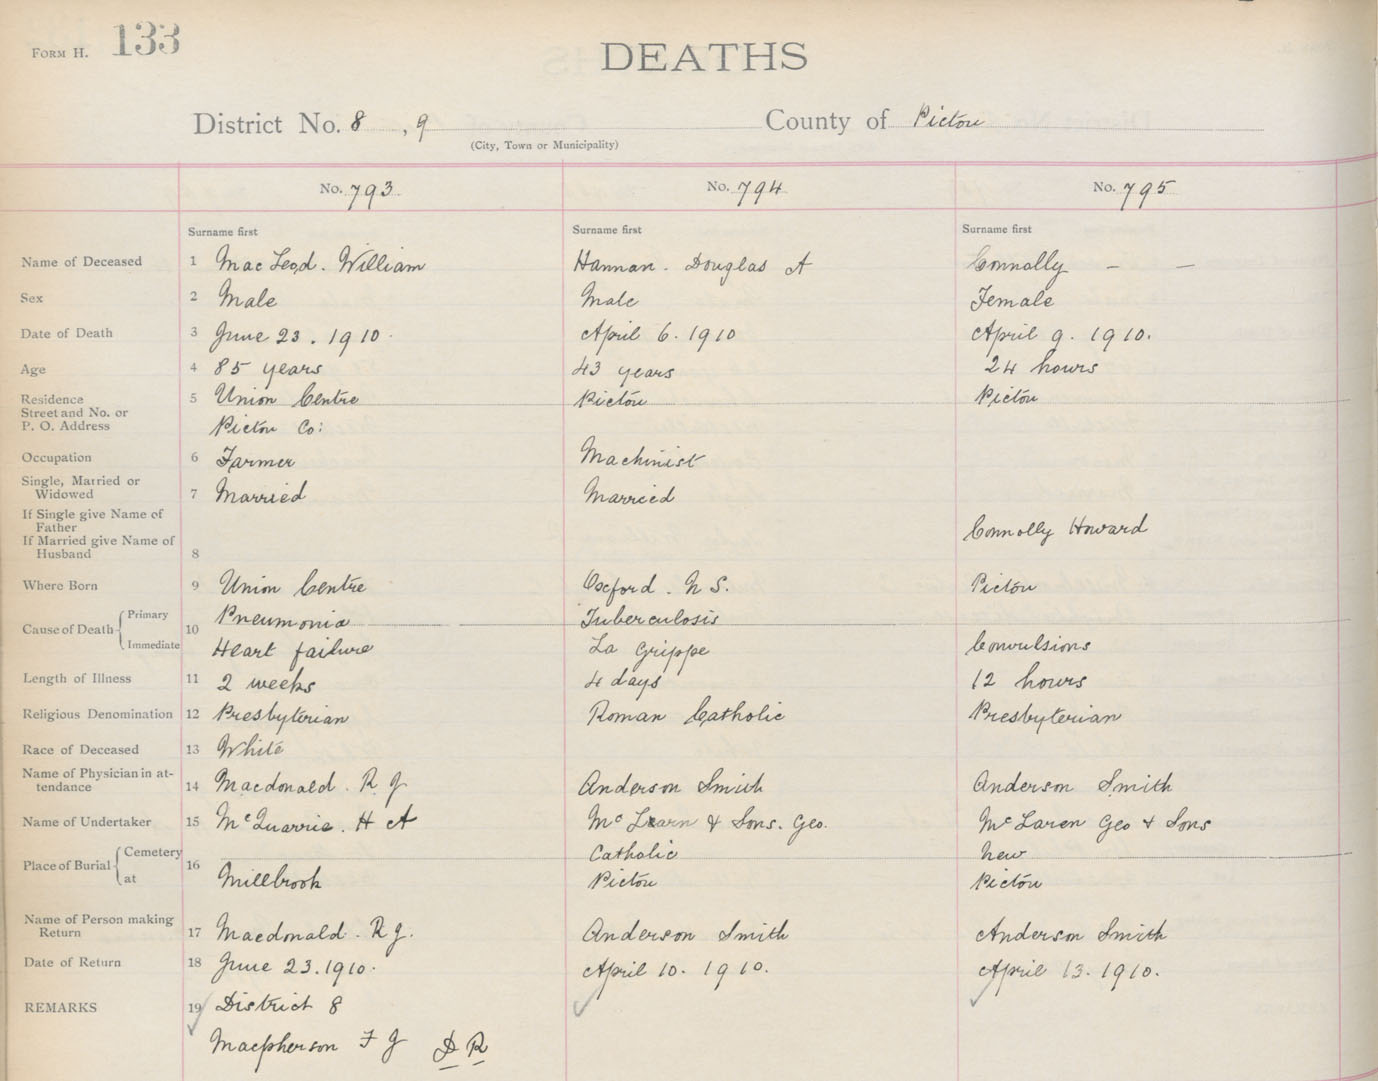 FORM H. 133
DEATHS
District No. 8 , 9 County of Pictou
(City, Town or Municipality)
No. 793 No. 794 No. 795
Surname first Surname first Surname first
Name of Deceased 1 MacLeod. William Hannan. Douglas A Connolly — —
Sex 2 Male Male Female
Date of Death 3 June 23. 1910. April 6. 1910 April 9. 1910.
Age 4 85 years 43 years 24 hours
Residence 5 Union Centre Pictou Pictou
Street and No. or
P. O. Address Pictou Co:
Occupation 6 Farmer Machinist
Single, Married or
Widowed 7 Married Married
If Single give Name of
Father Connolly Howard
If Married give Name of
Husband 8
Where Born 9 Union Centre Oxford. N S. Pictou
Cause of Death 10 Primary Pneumonia Tuberculosis
Immediate Heart failure La Grippe Convulsions
Length of Illness 11 2 weeks 4 days 12 hours
Religious Denomination 12 Presbyterian Roman Catholic Presbyterian
Race of Deceased 13 White
Name of Physician in at-
tendance 14 Macdonald. R J Anderson Smith Anderson Smith
Name of Undertaker 15 McQuarrie. H A McLearn & Sons. Geo. McLaren Geo & Sons
Place of Burial 16 Cemetery Catholic New
at Millbrook Pictou Pictou
Name of Person making
Return 17 Macdonald. R J. Anderson Smith Anderson Smith
Date of Return 18 June 23. 1910. April 10. 1910. April 13. 1910.
REMARKS 19 District 8
Macpherson F J D R